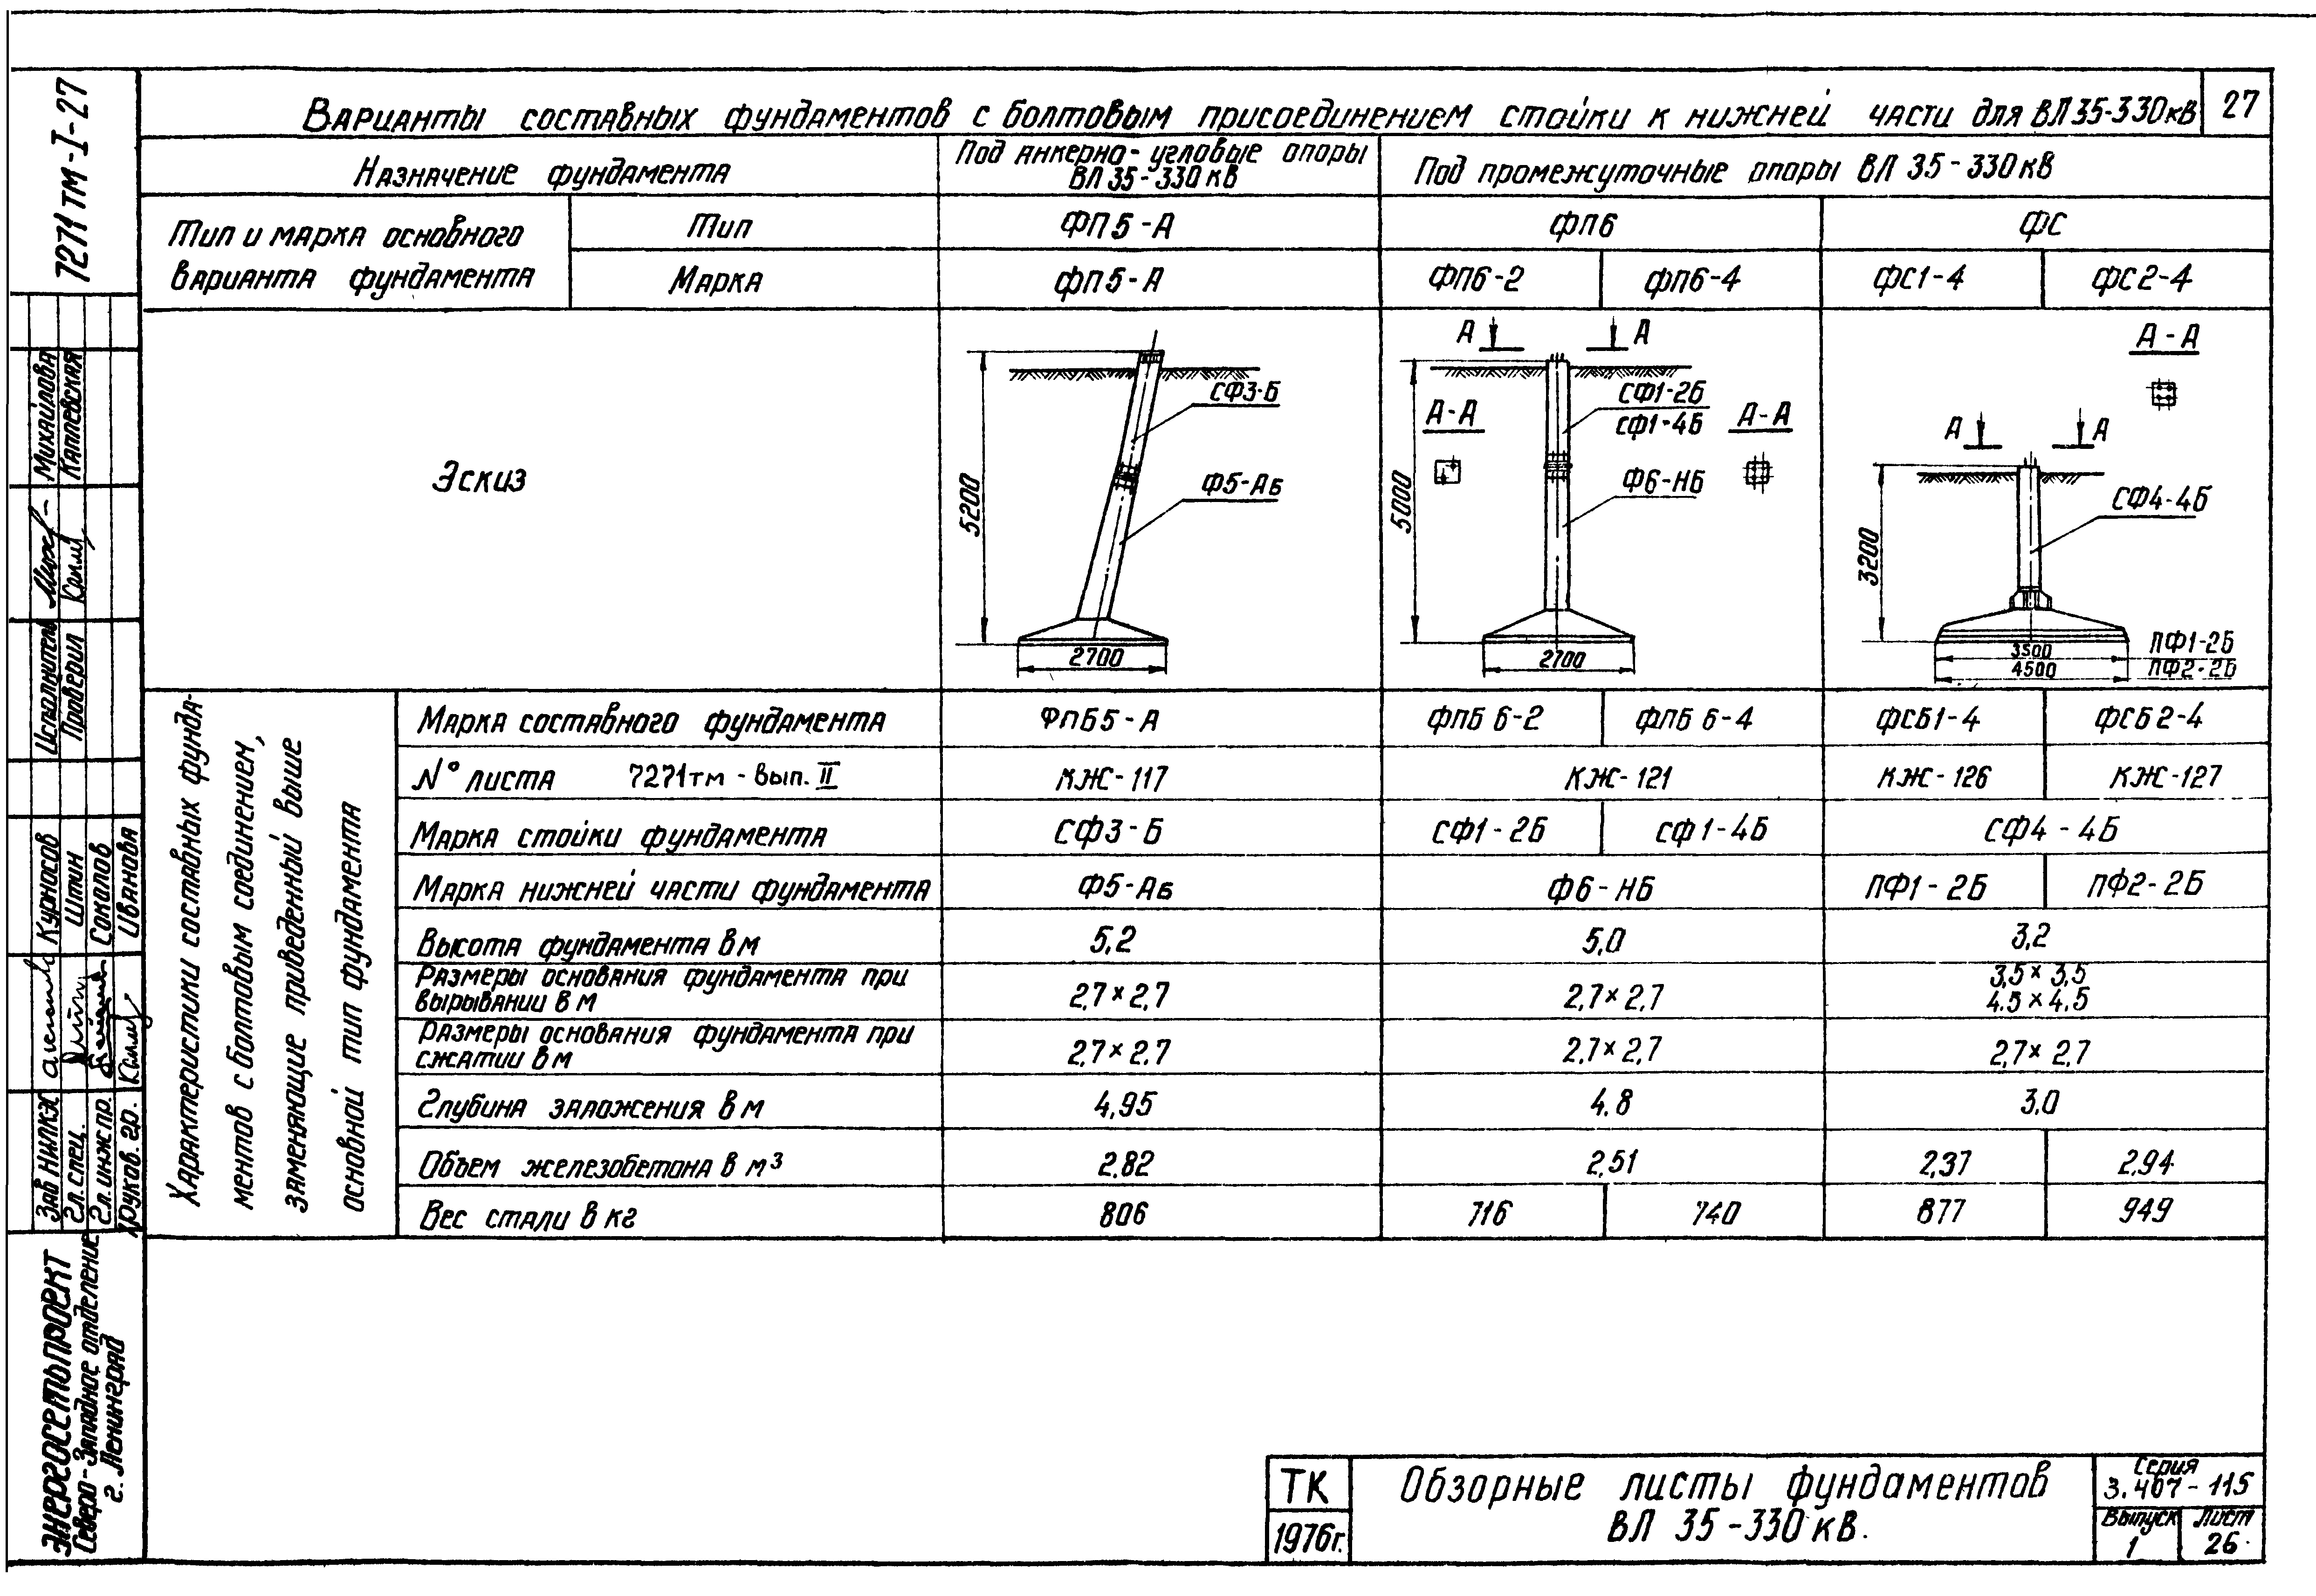 Варианты составных фундаментов с болтовым присоединением стойки к нижней части для ВЛ 35-330 кВ
27
Назначение фундамента
Под анкерно-угловые опоры
ВЛ 35-330 кВ
Под промежуточные опоры ВЛ 35-330 кВ
Тип и марка основного
варианта фундамента
Тип
ФП5-А
ФП6
ФС
Марка
ФП5-А
ФП6-2
ФП6-4
ФС1-4
ФС2-4
Эскиз
5200
СФ3-Б
Ф5-Аб
2700
А
А
А-А
А-А
СФ1-2Б
СФ1-4Б
Ф6-НБ
5000
2700
А-А
А
А
СФ4-4Б
3200
3500
4500
ПФ1-2Б
ПФ2-2Б
Характеристики составных фунда-
ментов с болтовым соединением,
заменяющие приведенный выше
основной тип фундамента
Марка составного фундамента
ФПБ5-А
ФПБ 6-2
ФПБ 6-4
ФСБ1-4
ФСБ2-4
N° листа 7271тм - Вып. II
КЖ-117
КЖ-121
КЖ-126
КЖ-127
Марка стойки фундамента
СФ3-Б
СФ1-2Б
СФ1-4Б
СФ4-4Б
Марка нижней части фундамента
Ф5-Аб
Ф6-НБ
ПФ1-2Б
ПФ2-2Б
Высота фундамента в м
5,2
5,0
3,2
Размеры основания фундамента при
вырывании в м
2,7×2,7
2,7×2,7
3,5×3,5
4.5×4,5
Размеры основания фундамента при
сжатии в м
2,7×2.7
2,7×2,7
2,7×2,7
Глубина заложения в м
4,95
4.8
3,0
Объем железобетона в м³
2,82
2,51
2,37
2,94
Вес стали в кг
806
716
740
877
949
ТК
1976г.
Обзорные листы фундаментов
ВЛ 35-330 кВ.
Серия
3.407-115
Выпуск
1
Лист
26
7271 тм-I-27
Исполнитель
Михайлова
Проверил
Каплевская
Зав НИЛКЖ
Курносов
Гл. спец.
Штин
Гл. инж пр.
Соколов
Руков. гр.
Иванова
ЭНЕРГОСЕТЬПРОЕКТ
Северо-Западное отделение
г. Ленинград